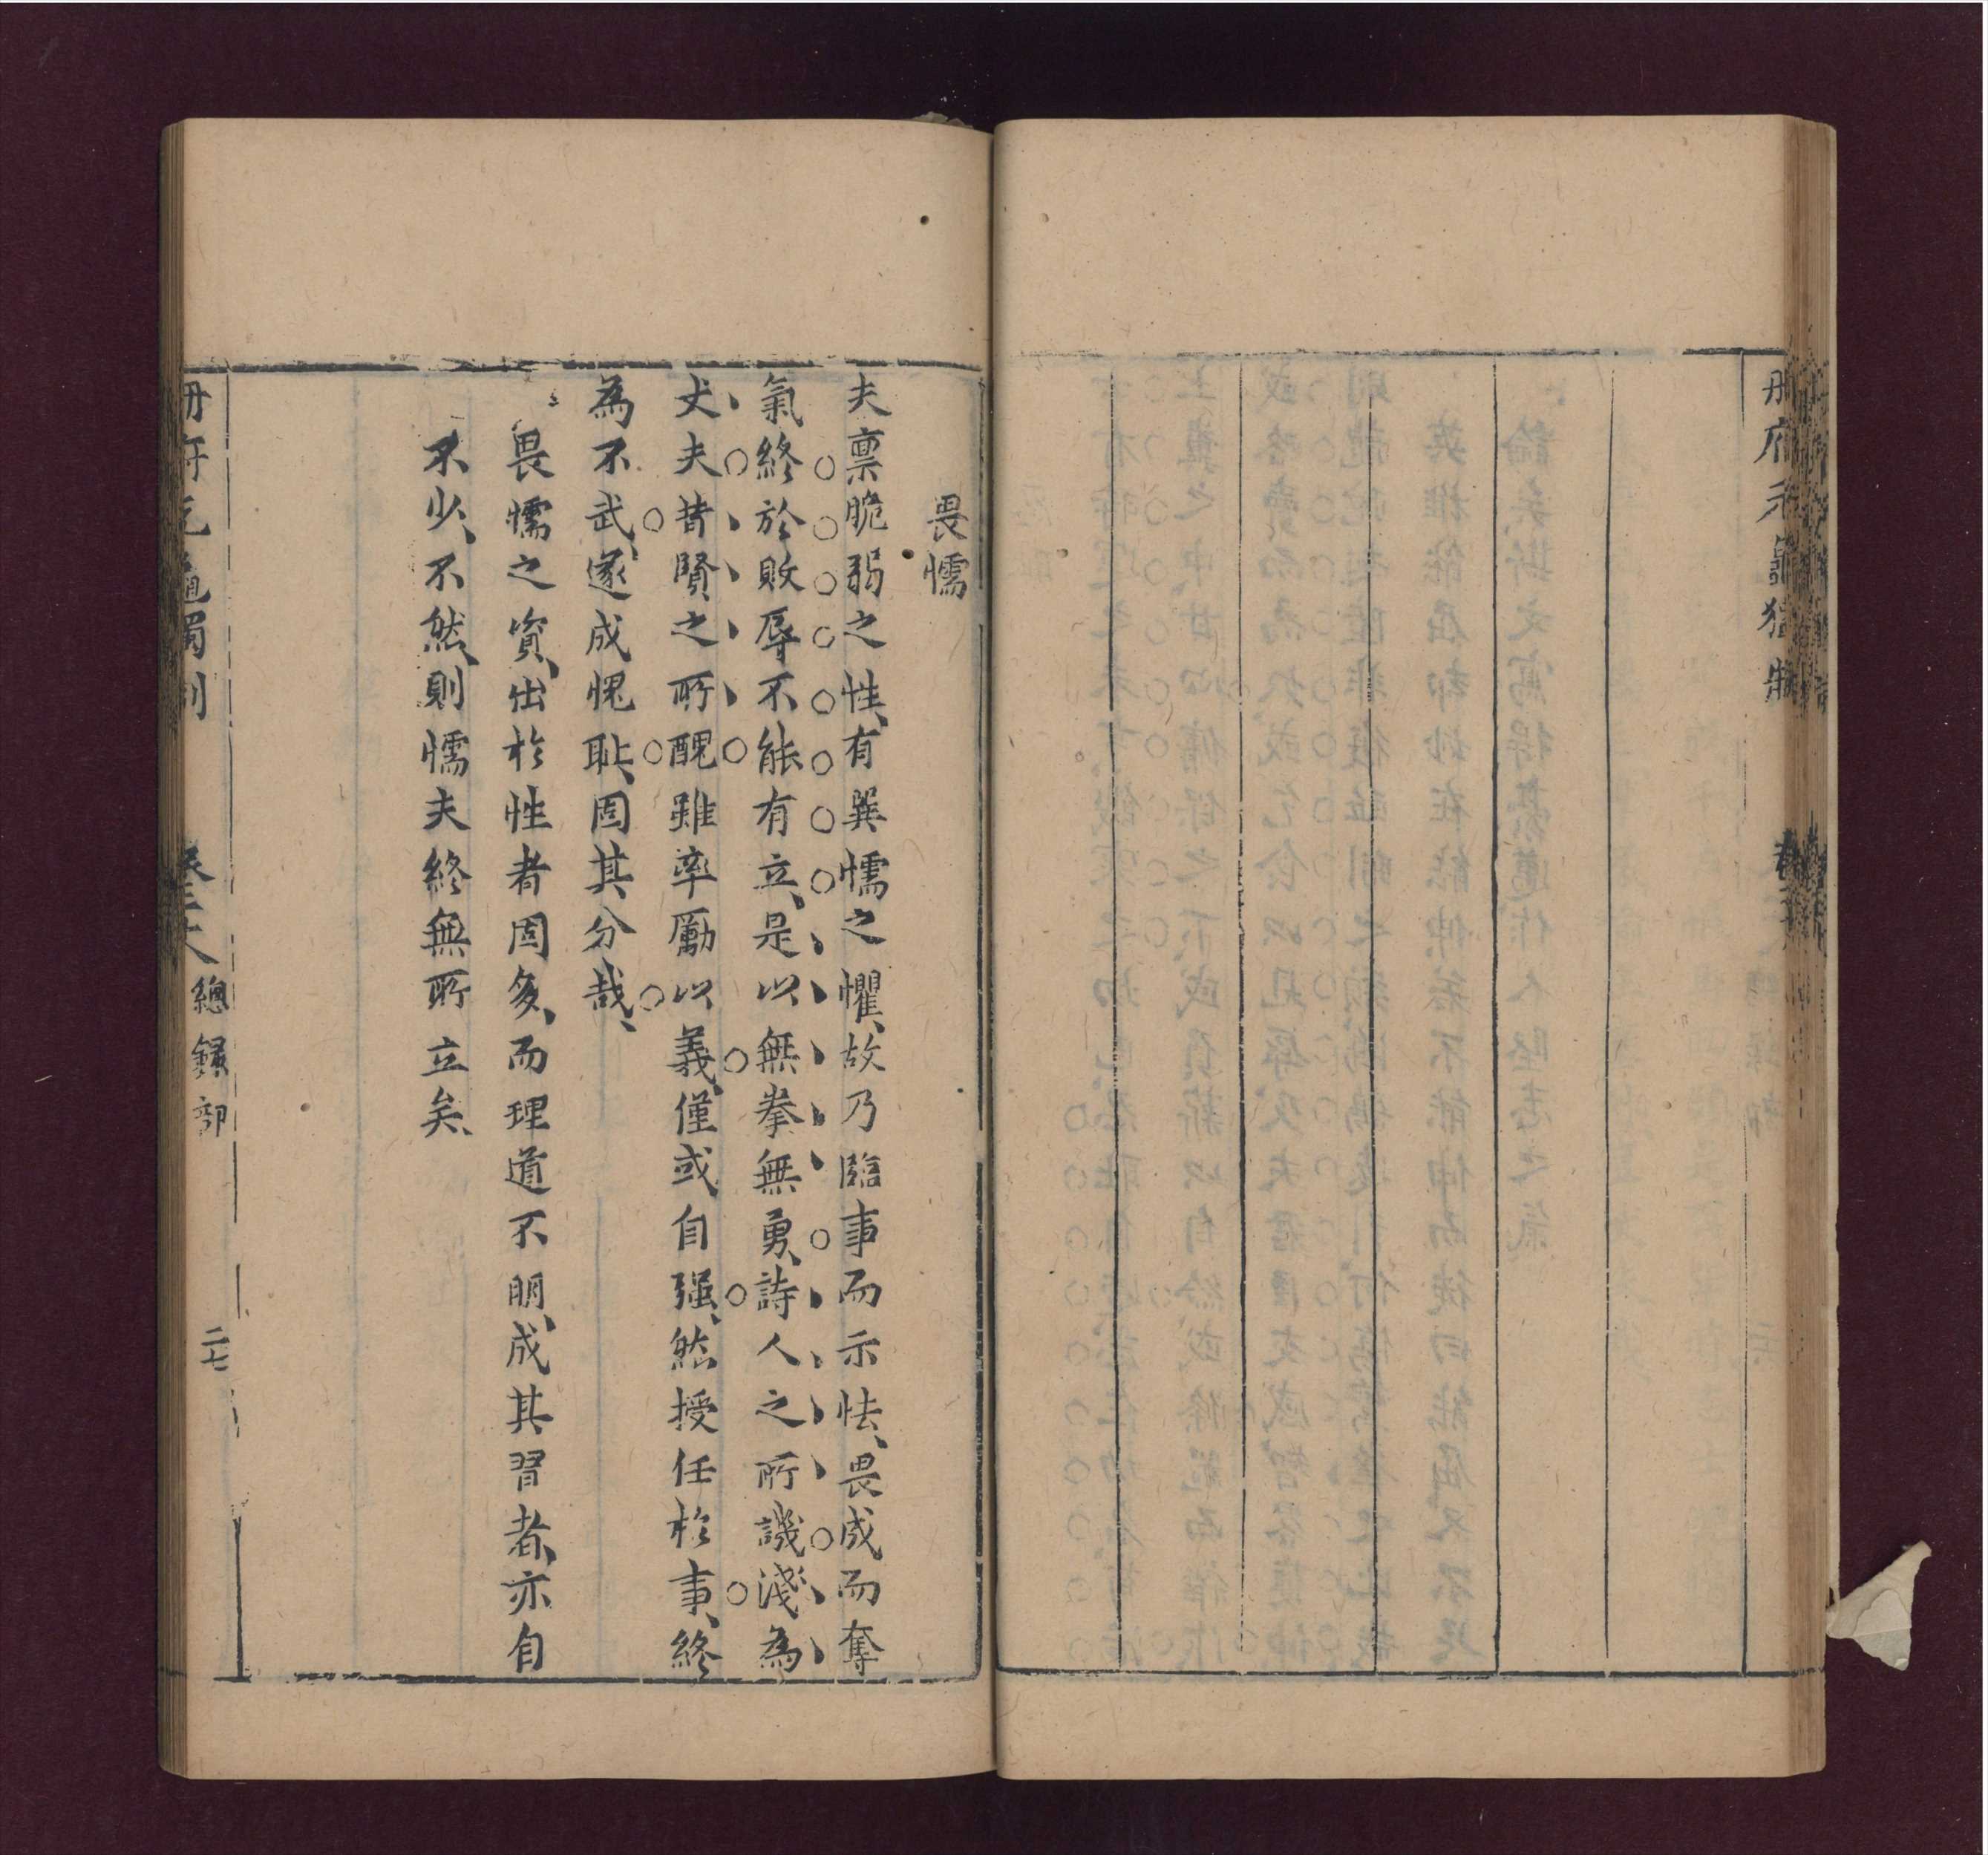 冊府元龜獨制
畏懦
夫禀脆弱之性、有巽懦之懼、故乃臨事而示怯、畏成而奪
氣終於敗辱不能有立、是以無拳無勇、詩人之所譏淺為
丈夫昔賢之所醜雖率厲以義、僅或自强、然授任於事、終
為不武、遂成愧耻、固其分哉、
畏懦之資、出於性者固多、而理道不明、成其習者、亦自
不少、不然、則懦夫終無所立矣、
冊府元龜獨制
卷三十八
總錄部
二七